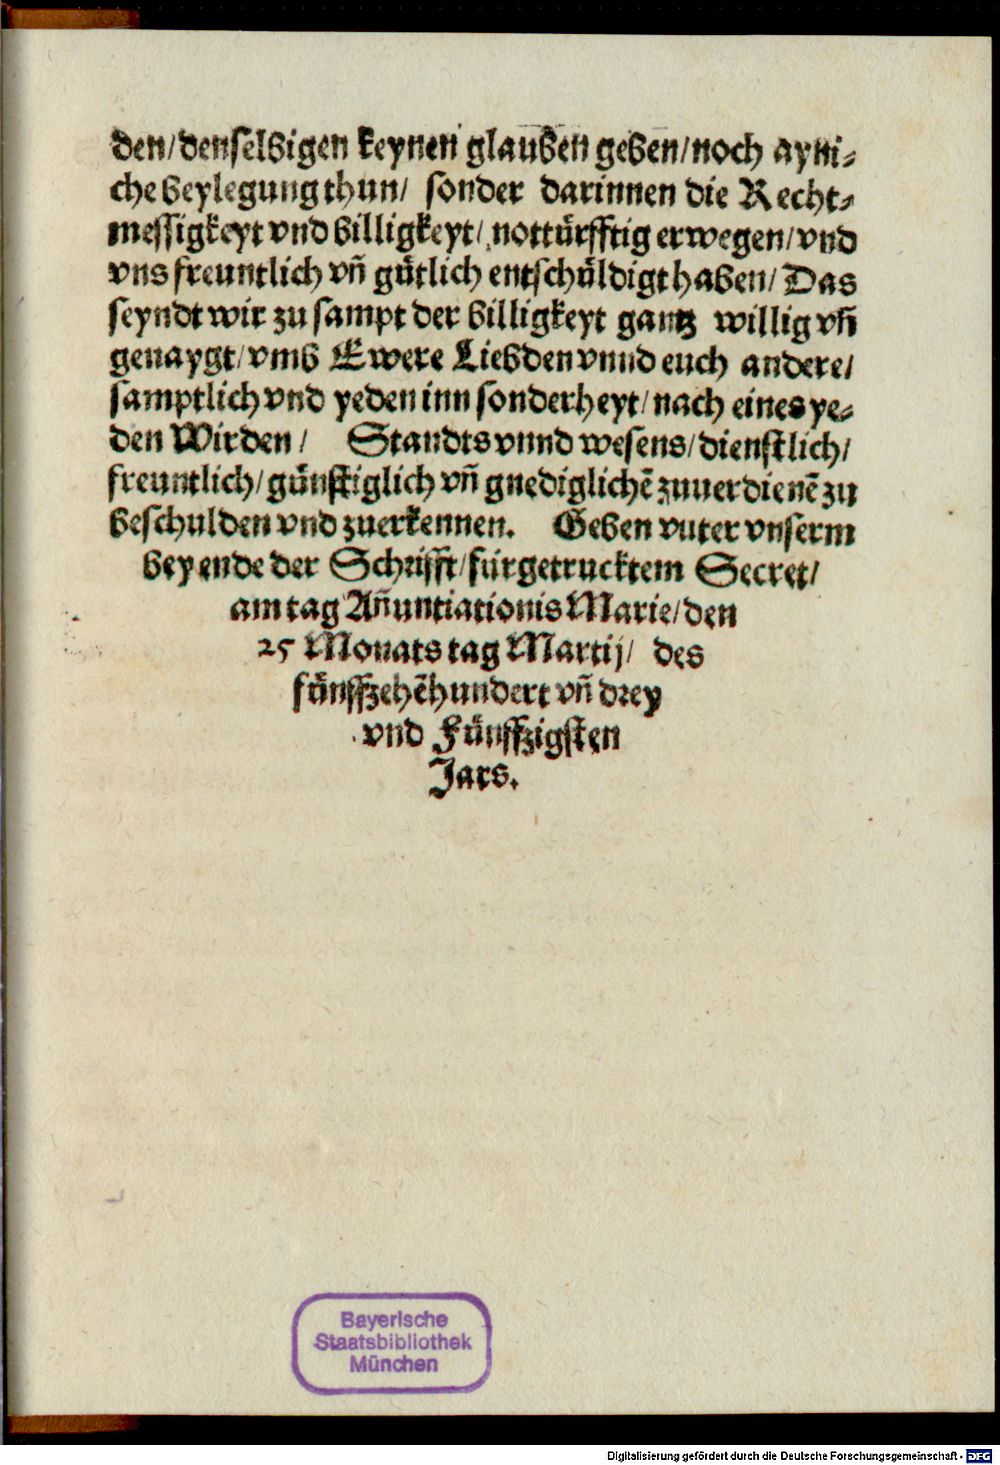 den/denselbigen keynen glauben geben/noch ayni⸗
che beylegung thun/ sonder darinnen die Recht⸗
messigkeyt vnd billigkeyt/ nottuͤrfftig erwegen/vnd
vns freuntlich vn̄ guͤtlich entschuͤldigt haben/ Das
seyndt wir zu sampt der billigkeyt gantz willig vn̄
genaygt/ vmb Ewere Liebden vnnd euch andere/
samptlich vnd yeden inn sonderheyt/ nach eines ye⸗
den Wirden/ Standts vnnd wesens/ dienstlich/
freuntlich/ guͤnstiglich vn̄ gnediglichē zuuerdienē zu
beschulden vnd zuerkennen. Geben vnter vnserm
bey ende der Schrifft/ fürgetrucktem Secret/
am tag An̄untiationis Marie/ den
25 Monats tag Martij/ des
fuͤnffzehēhundert vn̄ drey
vnd Fuͤnffzigsten
Jars.
Bayerische
Staatsbibliothek
München
Digitalisierung gefördert durch die Deutsche Forschungsgemeinschaft - DFG